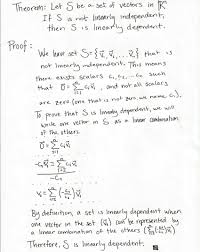 Theorem: Let S be a set of vectors in ℝⁿ.
If S is not linearly independent,
then S is linearly dependent.
Proof:
We have set S = {v⃗₁, v⃗₂, ... v⃗ₙ} that is
not linearly independent. This means
there exists scalars c₁, c₂, ... cₙ such
that 0⃗ = Σ cᵢv⃗ᵢ, and not all scalars
are zero (that one is not zero, we name c₁).
To prove that S is linearly dependent, we will
write one vector in S as a linear combination
of the others.
0⃗ = Σ cᵢv⃗ᵢ
-c₁v⃗₁ = Σ cᵢv⃗ᵢ
v⃗₁ = Σ (-cᵢ/c₁) v⃗ᵢ
By definition, a set is linearly dependent when
one vector in the set (v⃗₁) can be represented by
a linear combination of the others (Σ(-cᵢ/c₁)v⃗ᵢ)
Therefore, S is linearly dependent.